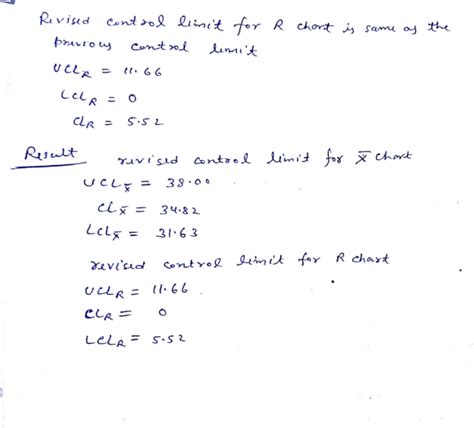 Revised control limit for R chart is same as the
previous control limit
UCLR = 11.66
LCLR = 0
CLR = 5.52
Result revised control limit for x̄ chart
UCLx̄ = 38.00
CLx̄ = 34.82
LCLx̄ = 31.63
revised control limit for R chart
UCLR = 11.66
CLR = 0
LCLR = 5.52